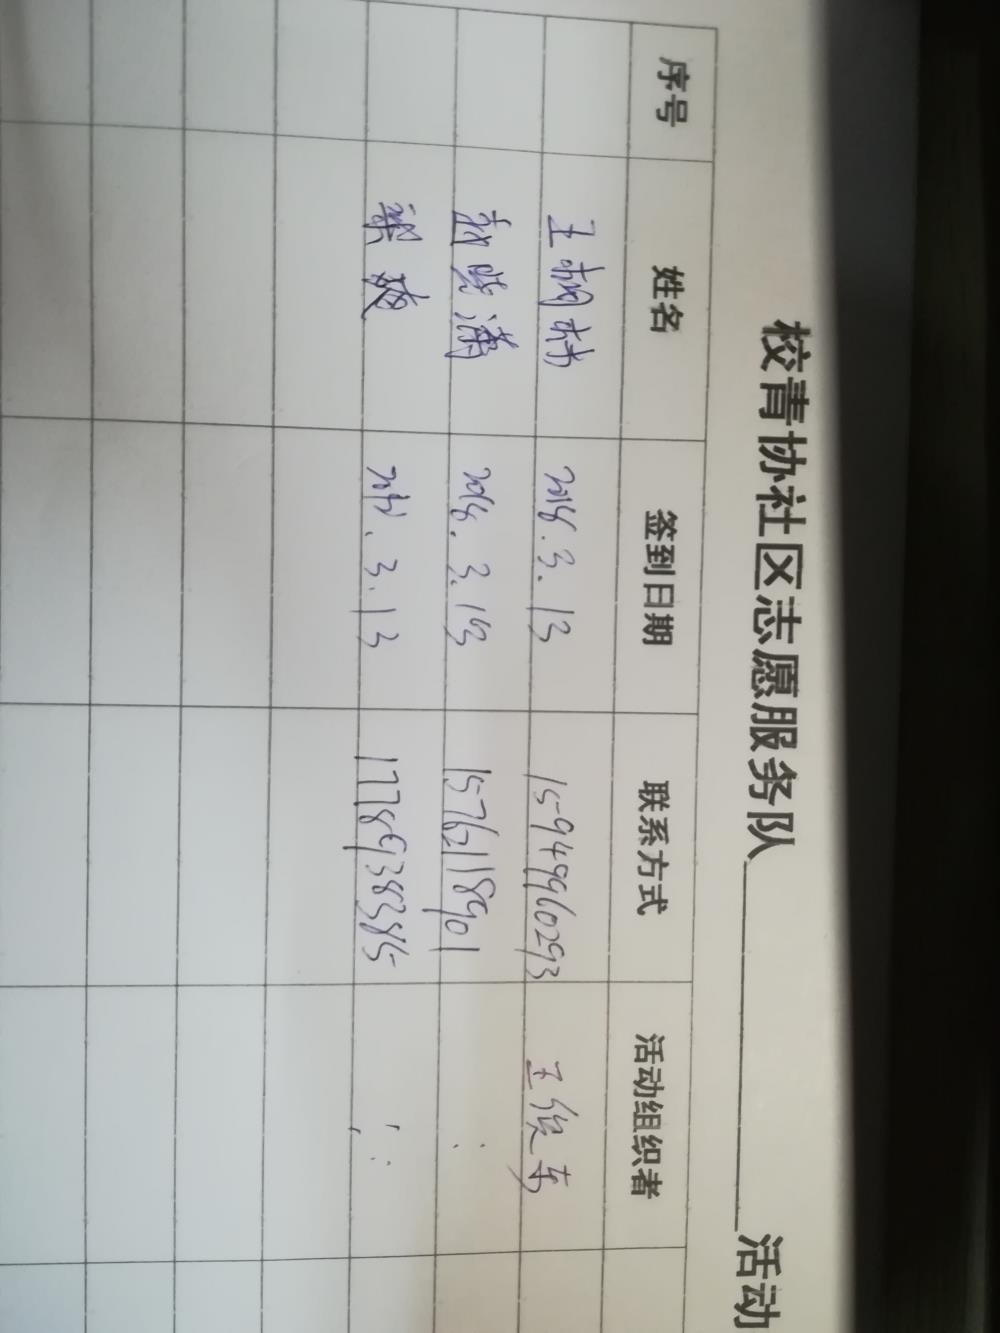 校青协社区志愿服务队 活动
序号 姓名 签到日期 联系方式 活动组织者
王 2018.3.13 15949960293 王俊东
晓潇 2018.3.13 15762118901
梁爽 2018.3.13 17789383845